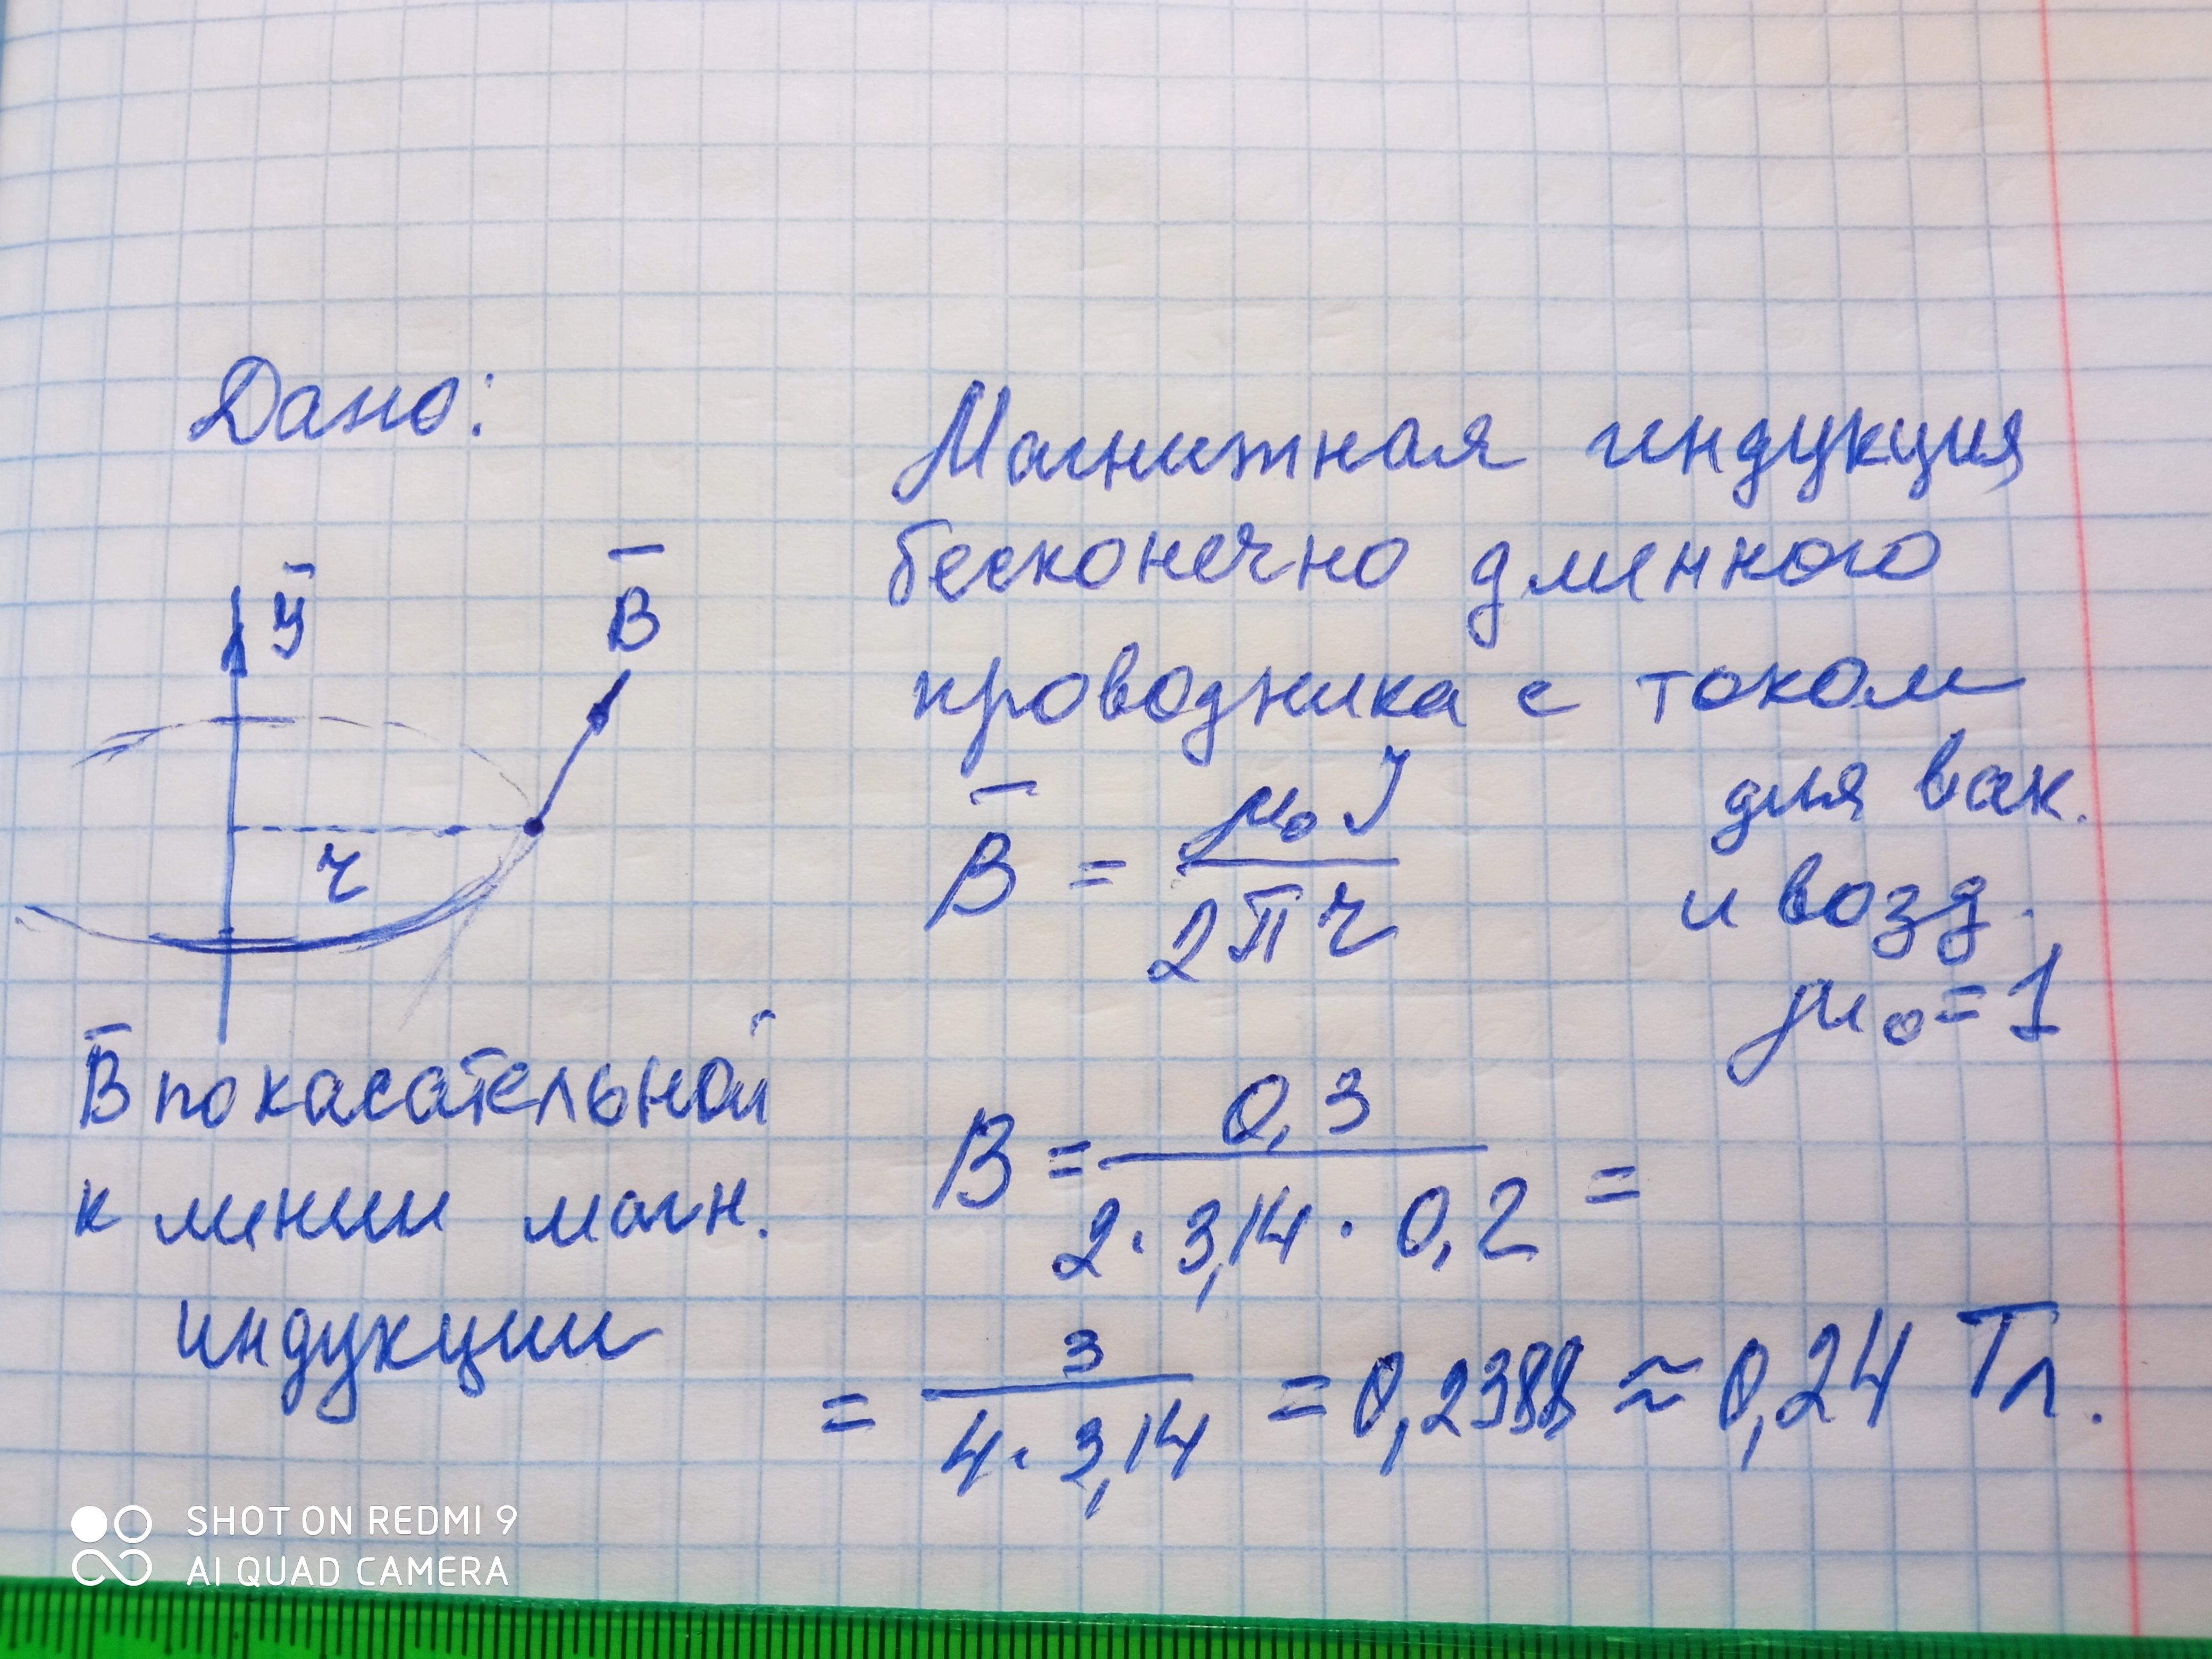 Дано:
Магнитная индукция
бесконечно длинного
проводника с током
для вак.
и возд.
μ₀ = 1
J̄
B̄
r
B̄ = μ₀J / 2πr
B̄ по касательной
к линии магн.
индукции
B = 0,3 / 2·3,14·0,2 =
= 3 / 4·3,14 = 0,2388 ≈ 0,24 Тл.
SHOT ON REDMI 9
AI QUAD CAMERA